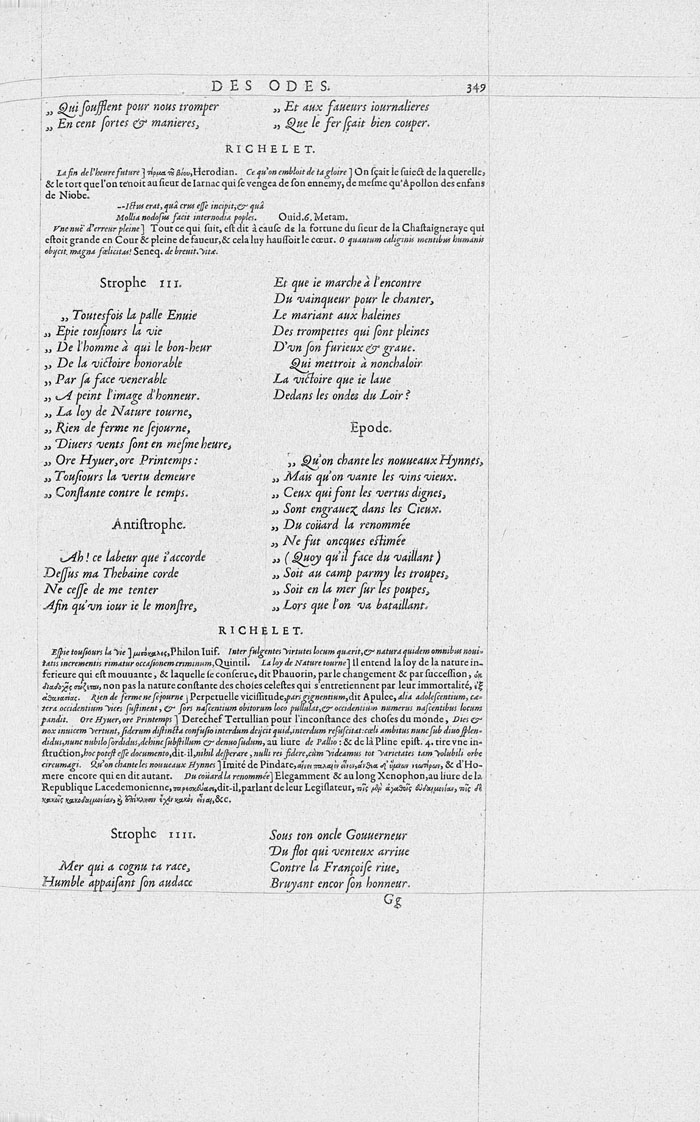 DES ODES. 349
„ Qui soufflent pour nous tromper
„ En cent sortes & manieres,
„ Et aux faueurs iournalieres
„ Que le fer sçait bien couper.
RICHELET.
La fin de l'heure future] τέρμα τοῦ βίου, Herodian. Ce qu'on embloit de ta gloire] On sçait le suiect de la querelle,
& le tort que l'on tenoit au sieur de Iarnac qui se vengea de son ennemy, de mesme qu'Apollon des enfans
de Niobe.
--Ictus erat, quà crus esse incipit, & quà
Mollia nodosus facit internodia poples. Ouid. 6. Metam.
Vne nuë d'erreur pleine] Tout ce qui suit, est dit à cause de la fortune du sieur de la Chastaigneraye qui
estoit grande en Cour & pleine de faueur, & cela luy haussoit le cœur. O quantum caliginis mentibus humanis
obijcit magna fœlicitas! Seneq. de breuit. vitæ.
Strophe III.
„ Toutesfois la palle Enuie
„ Epie tousiours la vie
„ De l'homme à qui le bon-heur
„ De la victoire honorable
„ Par sa face venerable
„ A peint l'image d'honneur.
„ La loy de Nature tourne,
„ Rien de ferme ne sejourne,
„ Diuers vents sont en mesme heure,
„ Ore Hyuer, ore Printemps:
„ Tousiours la vertu demeure
„ Constante contre le temps.
Antistrophe.
Ah! ce labeur que i'accorde
Dessus ma Thebaine corde
Ne cesse de me tenter
Afin qu'vn iour ie le monstre,
Et que ie marche à l'encontre
Du vainqueur pour le chanter,
Le mariant aux haleines
Des trompettes qui sont pleines
D'vn son furieux & graue.
Qui mettroit à nonchaloir
La victoire que ie laue
Dedans les ondes du Loir?
Epode.
„ Qu'on chante les nouueaux Hynnes,
„ Mais qu'on vante les vins vieux.
„ Ceux qui font les vertus dignes,
„ Sont engrauez dans les Cieux.
„ Du coüard la renommée
„ Ne fut oncques estimée
„ (Quoy qu'il face du vaillant)
„ Soit au camp parmy les troupes,
„ Soit en la mer sur les poupes,
„ Lors que l'on va bataillant.
RICHELET.
Espie tousiours la vie] Philon Iuif. Inter fulgentes virtutes locum quærit, & natura quidem omnibus noui-
tatis incrementis rimatur occasionem criminum, Quintil. La loy de Nature tourne] Il entend la loy de la nature in-
ferieure qui est mouuante, & laquelle se conserue, dit Phauorin, par le changement & par succession,
non pas la nature constante des choses celestes qui s'entretiennent par leur immortalité,
Rien de ferme ne sejourne] Perpetuelle vicissitude, pars gignentium, dit Apulee, alia adolescentium, cæ-
tera occidentium vices sustinent, & sors nascentium obitorum loco pullulat, & occidentium numerus nascentibus locus
pandit. Ore Hyuer, ore Printemps] Derechef Tertullian pour l'inconstance des choses du monde, Dies &
nox inuicem vertunt, siderum distincta confusio interdum deijcit quid, interdum resuscitat: cæli ambitus nunc sub diuo splen-
didus, nunc nubilo sordidus, dehinc substillum & denuo sudum, au liure de Pallio: & de là Pline epist. 4. tire vne in-
struction, hoc potest esse documento, dit-il, nihil desperare, nulli rei fidere, cùm videamus tot varietates tam volubili orbe
circumagi. Qu'on chante les nouueaux Hynnes] Imité de Pindare, & d'Ho-
mere encore qui en dit autant. Du coüard la renommée] Elegamment & au long Xenophon, au liure de la
Republique Lacedemonienne, dit-il, parlant de leur Legislateur,
&c.
Strophe IIII.
Mer qui a cognu ta race,
Humble appaisant son audace
Sous ton oncle Gouuerneur
Du flot qui venteux arriue
Contre la Françoise riue,
Bruyant encor son honneur.
Gg